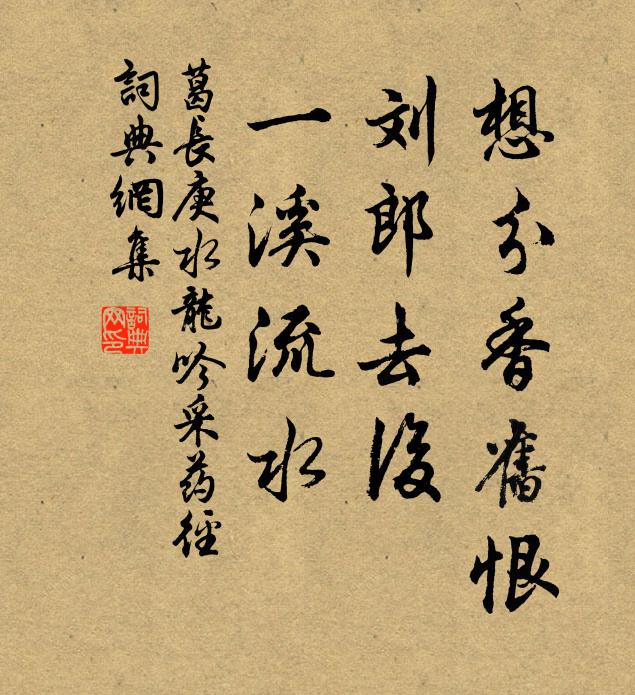 想分香舊恨
刘郎去後
一溪流水
葛長庚水龍吟采药徑
詞典網集
詞典
网印